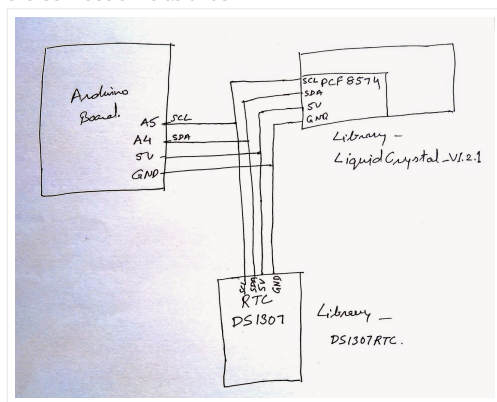 Arduino
Board.
A5 SCL
A4 SDA
5V
GND
SCL PCF8574
SDA
5V
GND
Library -
LiquidCrystal_V1.2.1
SCL
SDA
5V
GND
RTC
DS1307
Library -
DS1307RTC.